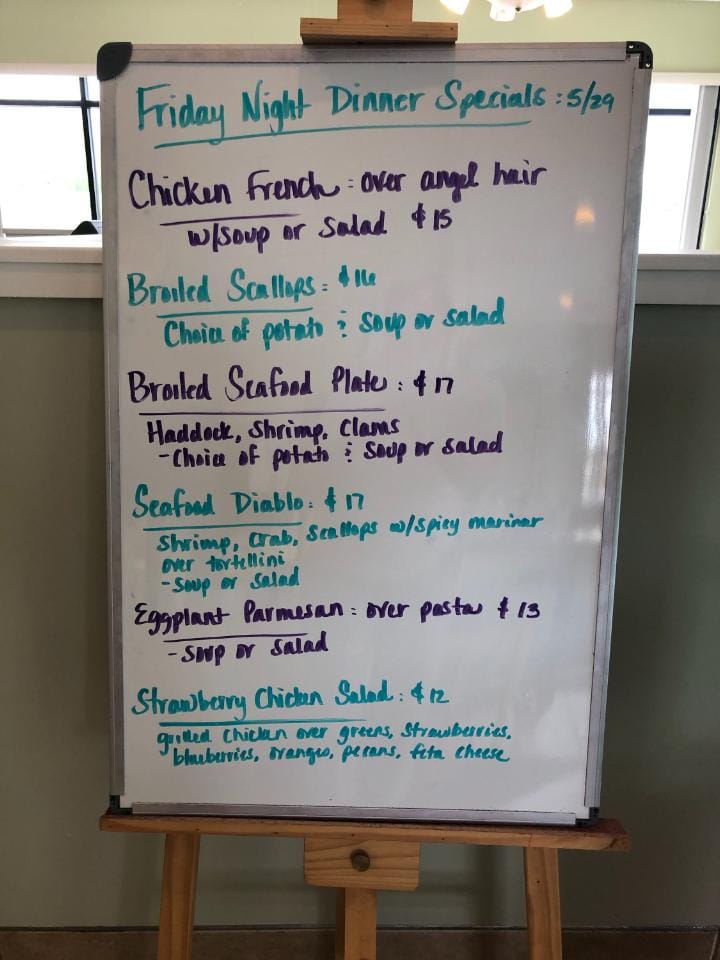 Friday Night Dinner Specials : 5/29
Chicken French : over angel hair
w/soup or salad $15
Broiled Scallops : $16
Choice of potato & soup or salad
Broiled Seafood Plate : $17
Haddock, Shrimp, Clams
- Choice of potato & soup or salad
Seafood Diablo : $17
Shrimp, Crab, Scallops w/spicy marinar
over tortellini
- Soup or Salad
Eggplant Parmesan : over pasta $13
- Soup or Salad
Strawberry Chicken Salad : $12
grilled chicken over greens, strawberries,
blueberries, oranges, pecans, feta cheese